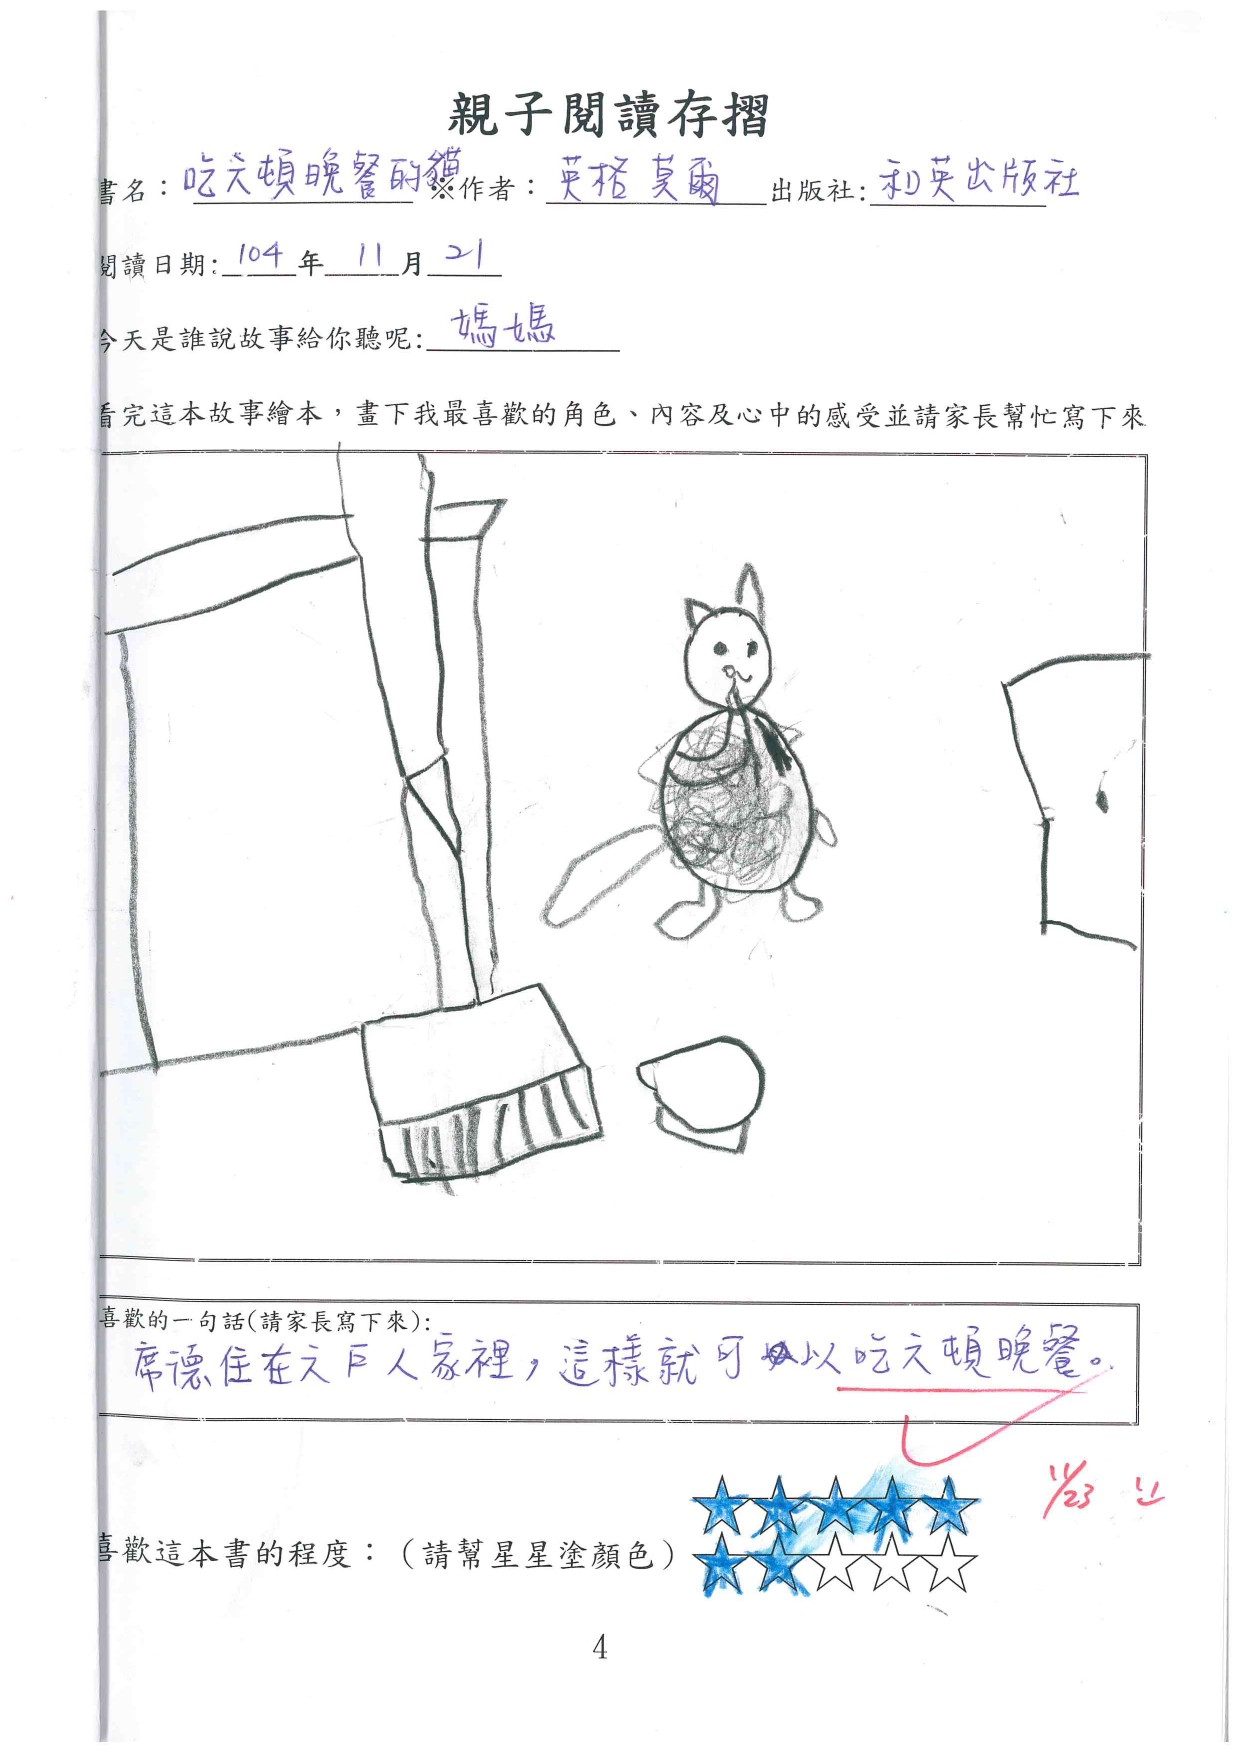 親子閱讀存摺
書名：吃六頓晚餐的貓 ※作者：英格莫爾 出版社:和英出版社
閱讀日期:104年11月21
今天是誰說故事給你聽呢:媽媽
看完這本故事繪本，畫下我最喜歡的角色、內容及心中的感受並請家長幫忙寫下來
喜歡的一句話(請家長寫下來):
席德住在六戶人家裡，這樣就可以吃六頓晚餐。
11/23
喜歡這本書的程度：（請幫星星塗顏色）
4